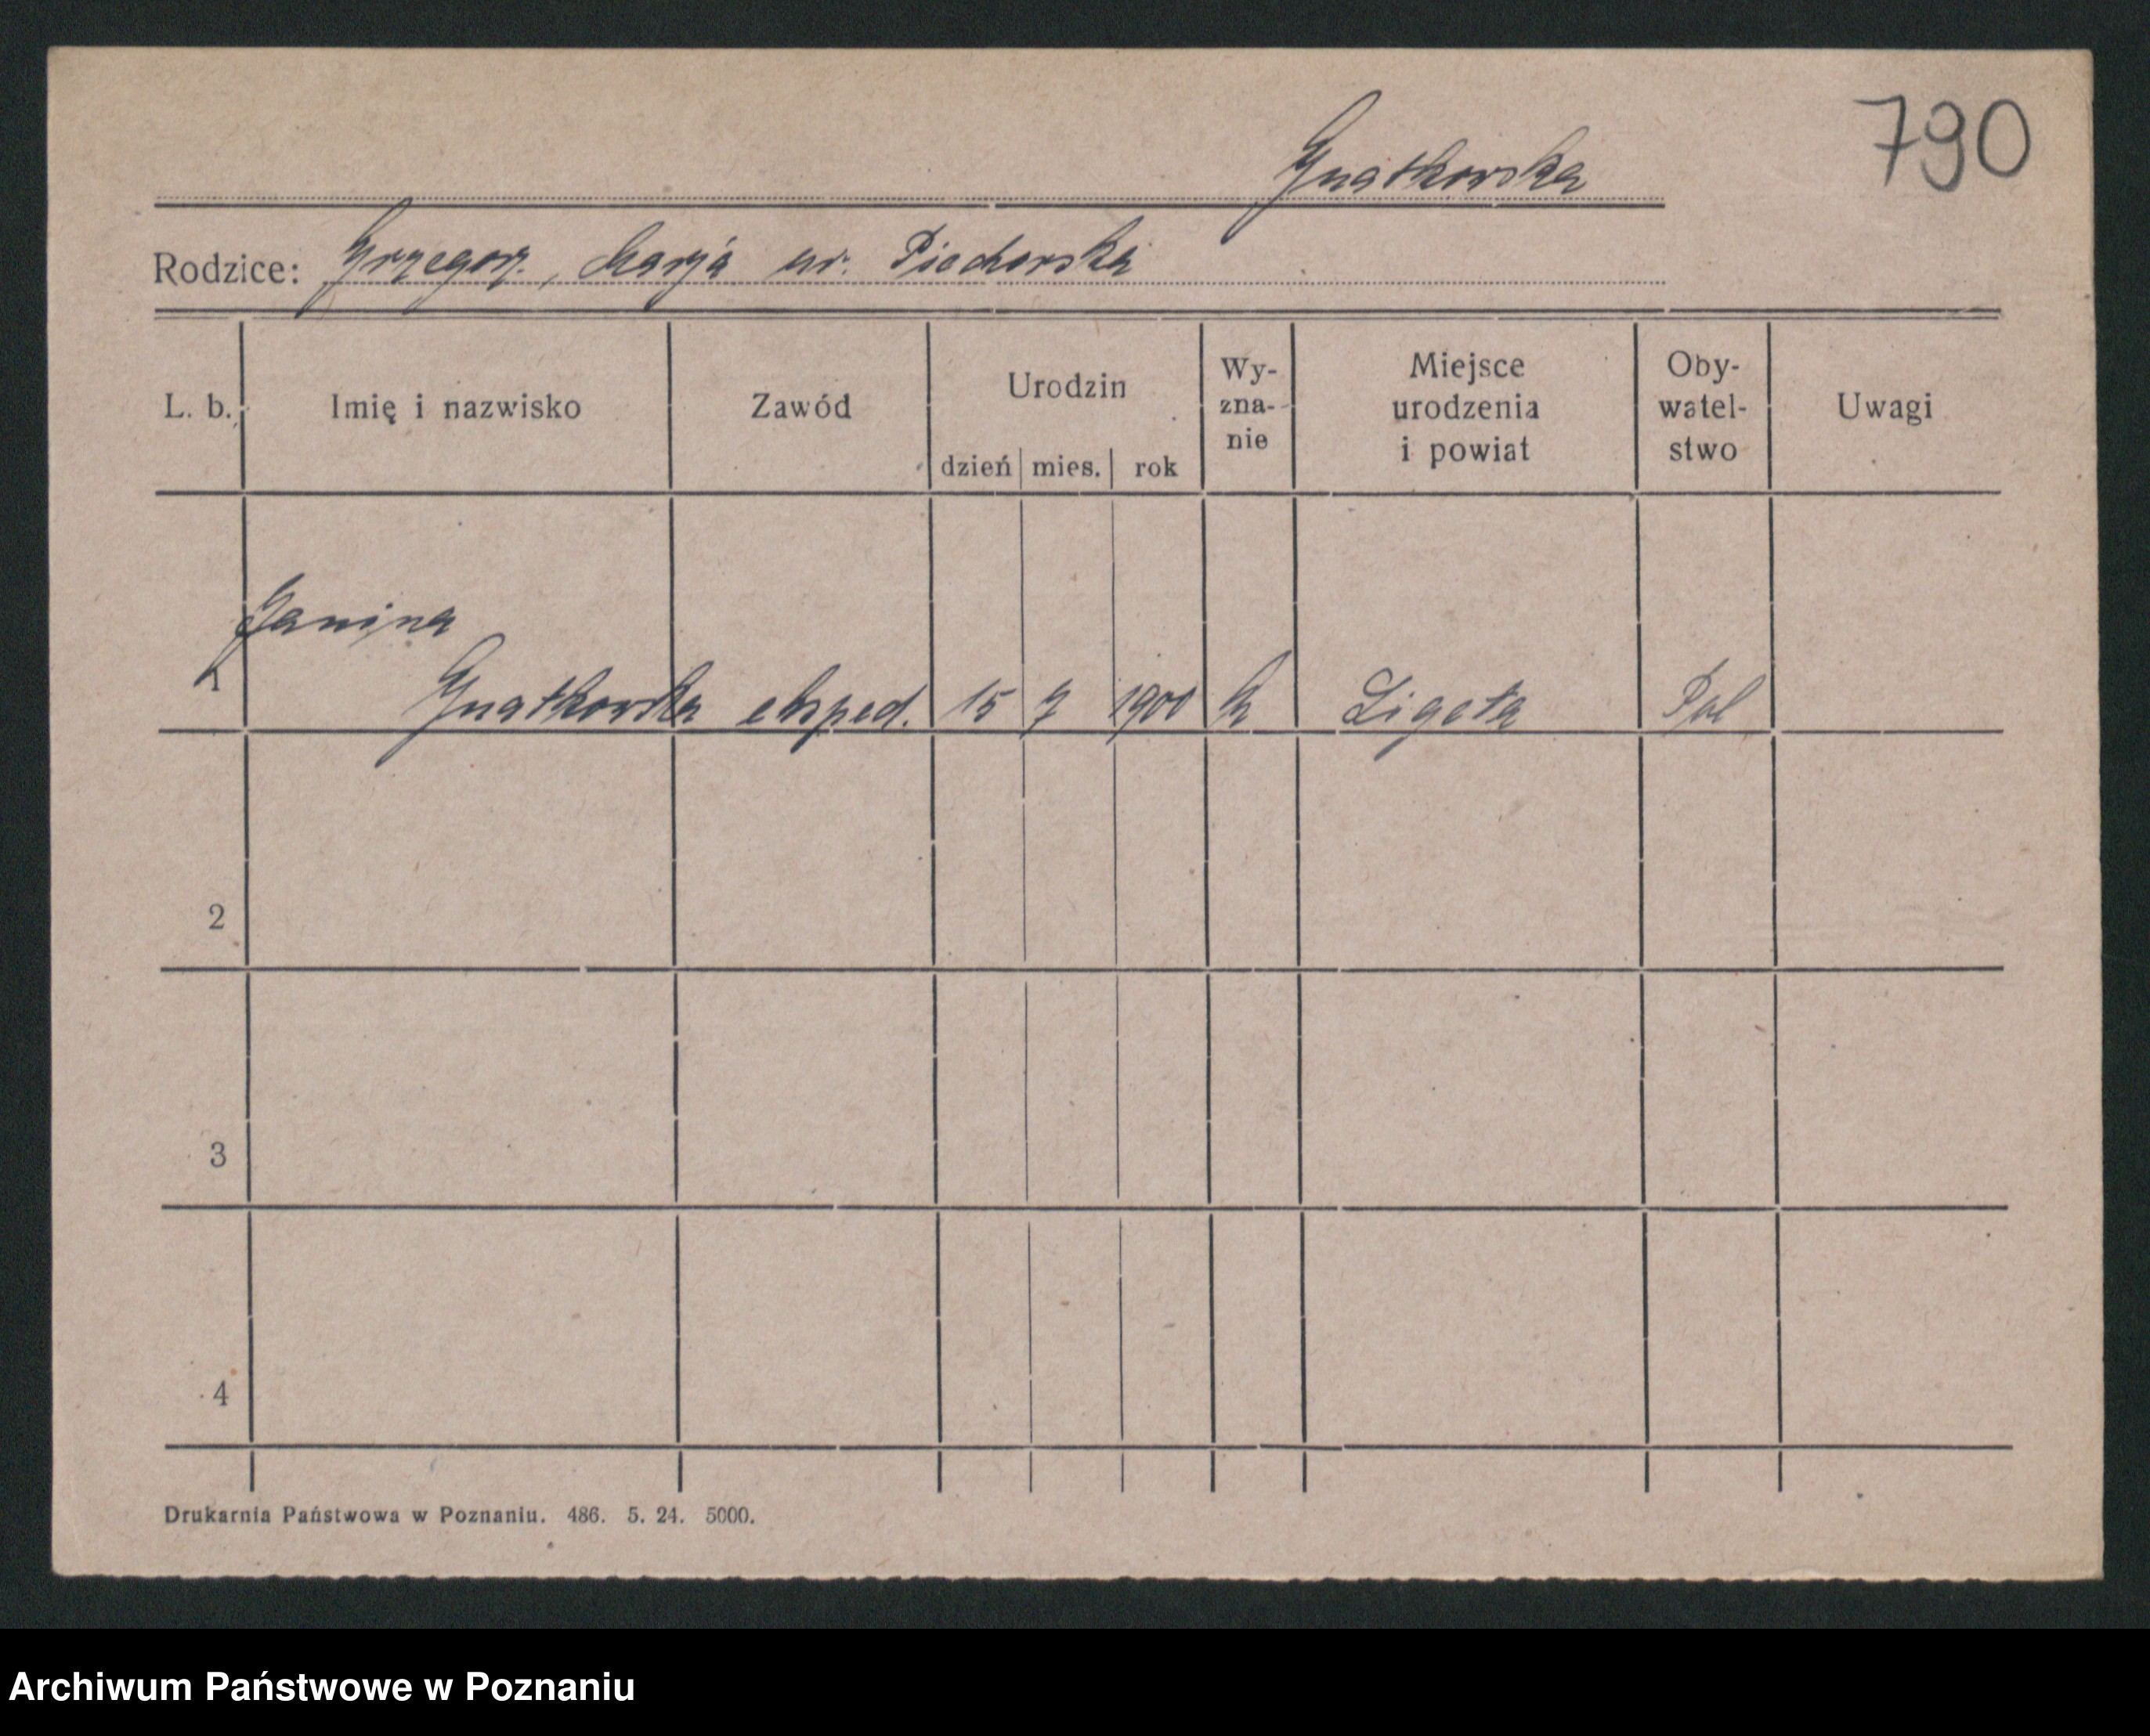 790
Gnatkowska
Rodzice: Grzegorz, Marja ur. Piechorska
L. b. Imię i nazwisko Zawód Urodzin dzień mies. rok Wy-zna-nie Miejsce urodzenia i powiat Oby-watel-stwo Uwagi
Janina
1 Gnatkowska eksped. 15 7 1900 k Ligota Pol
2
3
4
Drukarnia Państwowa w Poznaniu. 486. 5. 24. 5000.
Archiwum Państwowe w Poznaniu